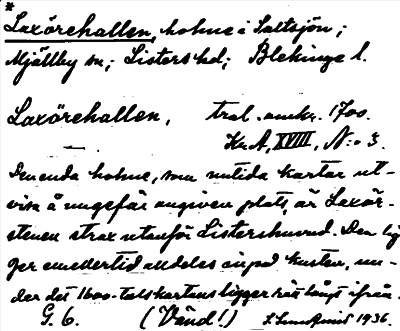 *
Laxörehallen, holme i Saltsjön;
Mjällby sn; Listers hd; Blekinge l.
Laxörehallen, tral. omkr. 1700.
Kr. A, XVIII, N:o 3.
Den enda holme, som nutida kartor ut-
visa å ungefär angiven plats, är Laxör-
stenen strax utanför Listershuvud. Den lig
ger emellertid alldeles inpå kusten, me-
dan det 1600-talskartans ligger rätt långt ifrån.
G. 6. (Vänd!) 1936.